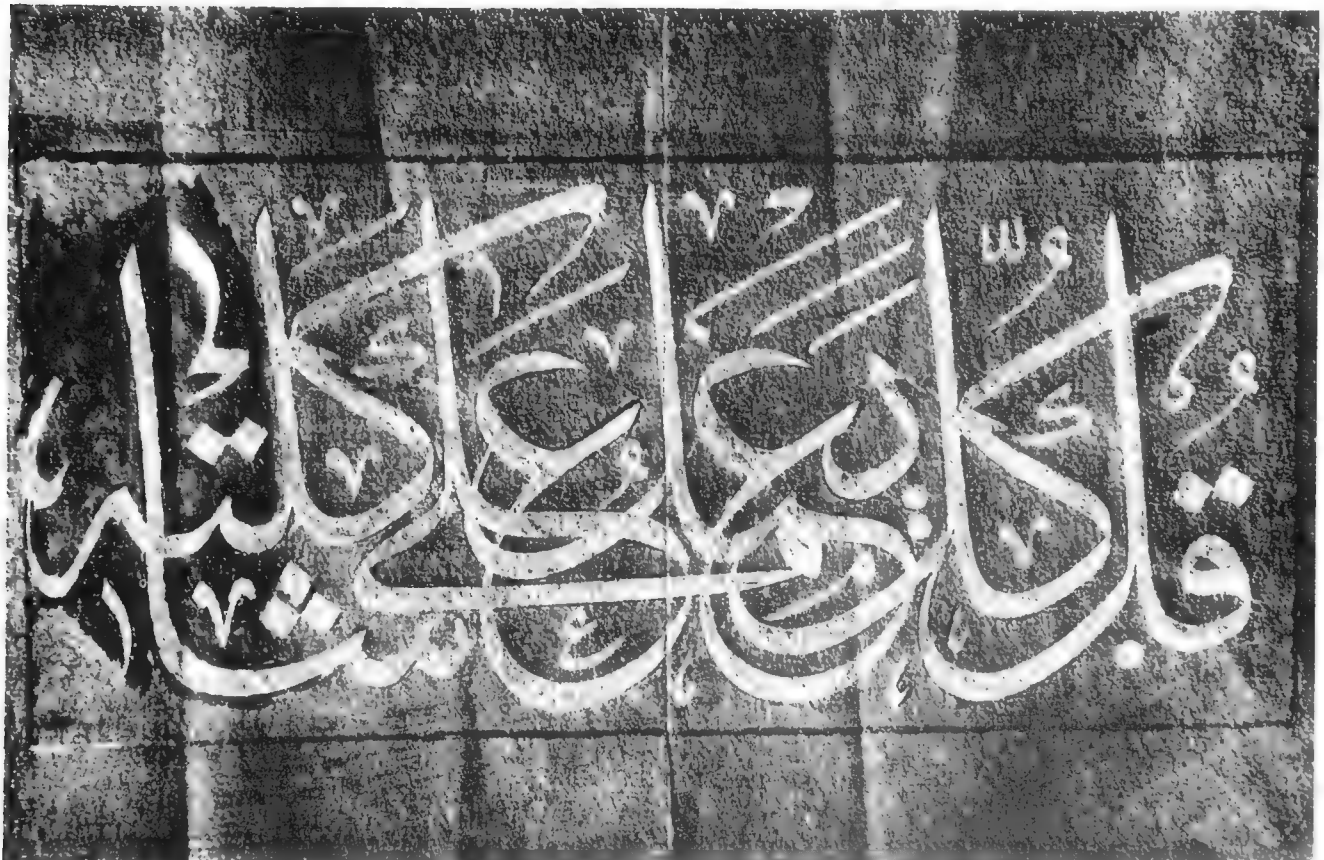 قل كل يعمل على شاكلته